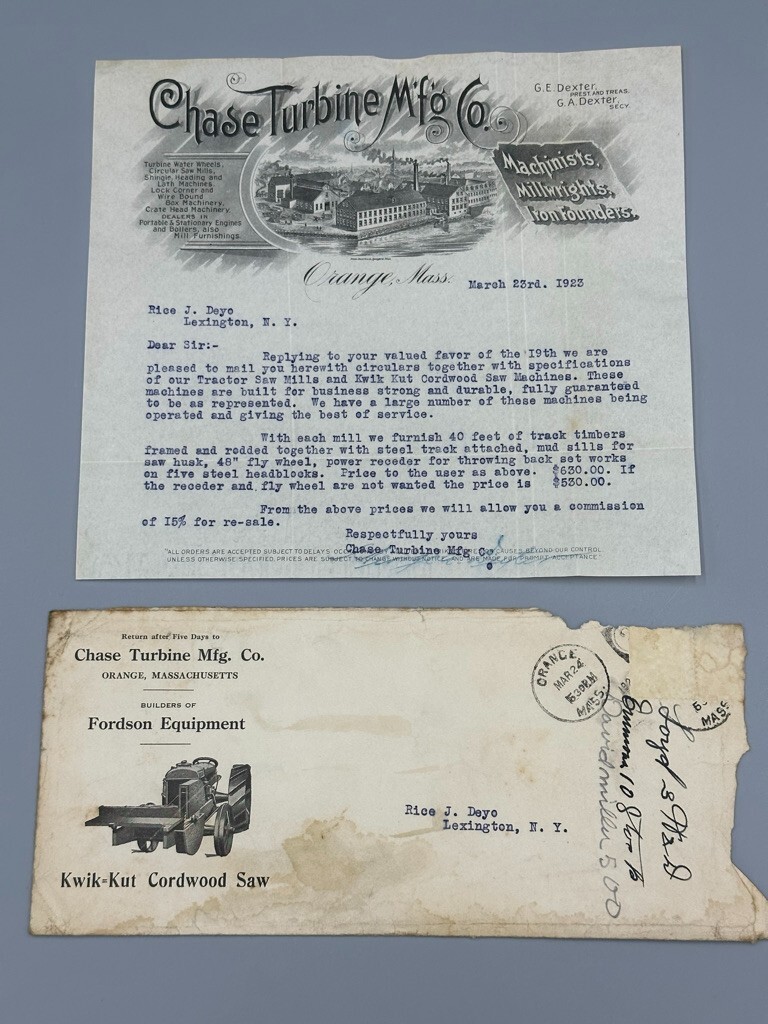 Chase Turbine M'f'g Co.
G.E. Dexter,
PREST. AND TREAS.
G.A. Dexter,
SECY.
Turbine Water Wheels,
Circular Saw Mills,
Shingle, Heading and
Lath Machines.
Lock Corner and
Wire Bound
Box Machinery,
Crate Head Machinery.
DEALERS IN
Portable & Stationary Engines
and Boilers, also
Mill Furnishings.
Machinists,
Millwrights,
Iron Founders.
Orange, Mass. March 23rd. 1923
Rice J. Deyo
Lexington, N. Y.
Dear Sir:-
Replying to your valued favor of the 19th we are
pleased to mail you herewith circulars together with specifications
of our Tractor Saw Mills and Kwik Kut Cordwood Saw Machines. These
machines are built for business strong and durable, fully guaranteed
to be as represented. We have a large number of these machines being
operated and giving the best of service.
With each mill we furnish 40 feet of track timbers
framed and rodded together with steel track attached, mud sills for
saw husk, 48" fly wheel, power receder for throwing back set works
on five steel headblocks. Price to the user as above. $630.00. If
the receder and fly wheel are not wanted the price is $530.00.
From the above prices we will allow you a commission
of 15% for re-sale.
Respectfully yours
Chase Turbine Mfg Co
"ALL ORDERS ARE ACCEPTED SUBJECT TO DELAYS CAUSES BEYOND OUR CONTROL.
UNLESS OTHERWISE SPECIFIED, PRICES ARE SUBJECT TO CHANGE WITHOUT NOTICE, AND ARE MADE FOR PROMPT ACCEPTANCE."
Return after Five Days to
Chase Turbine Mfg. Co.
ORANGE, MASSACHUSETTS
BUILDERS OF
Fordson Equipment
Kwik=Kut Cordwood Saw
ORANGE
MAR 24
530PM
MASS.
MASS
Rice J. Deyo
Lexington, N. Y.
David miller 500